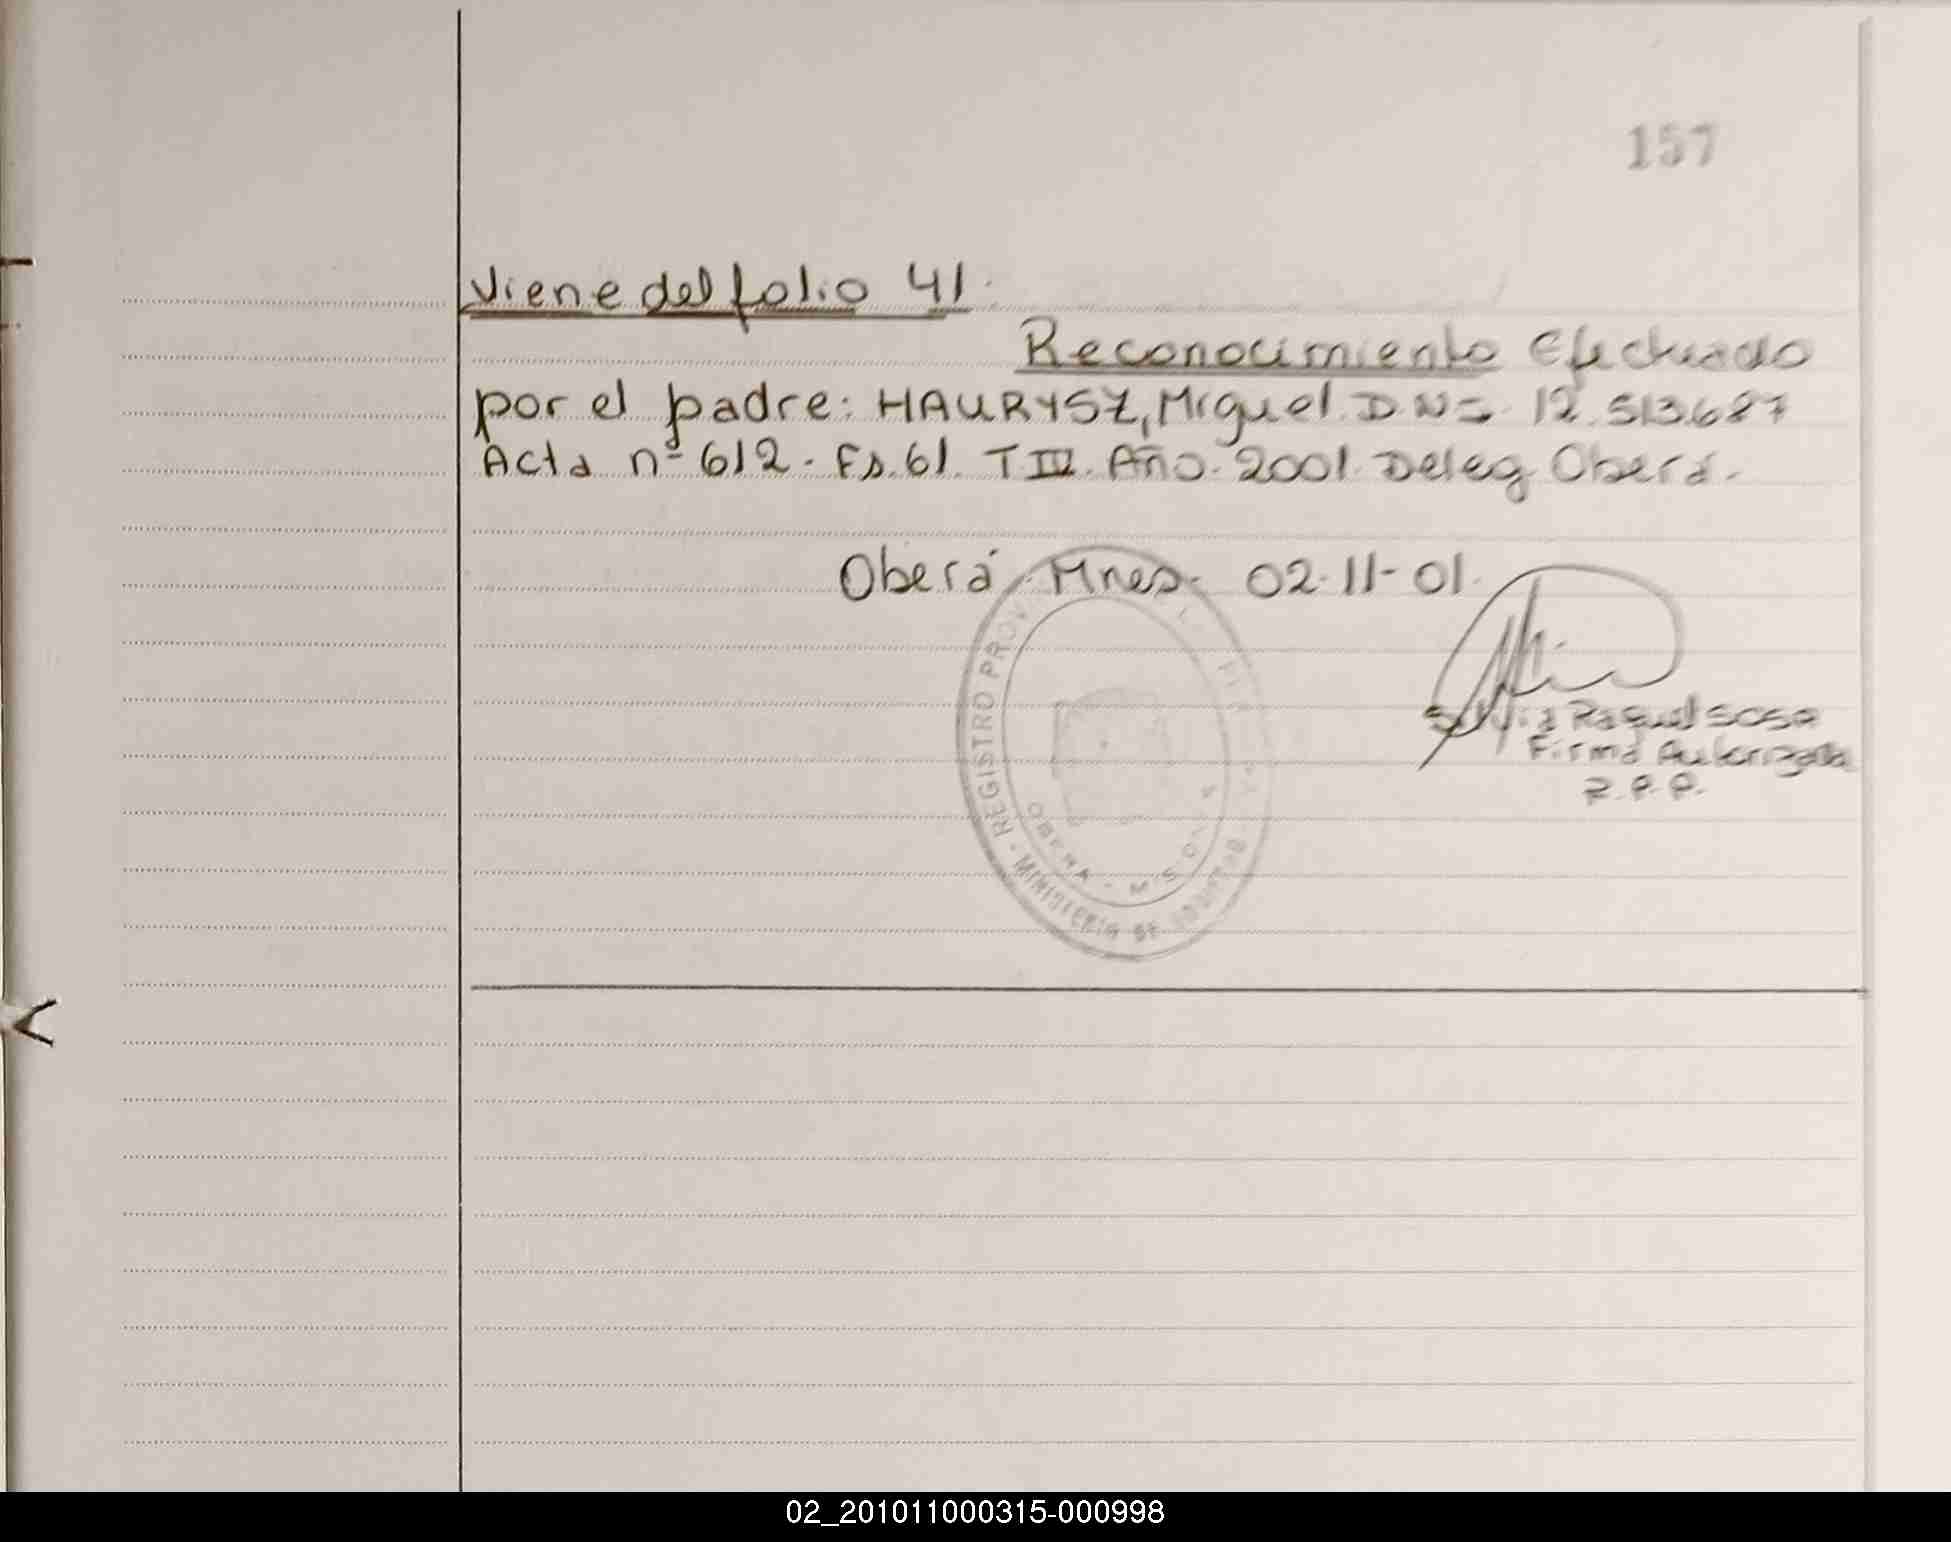 157
Viene del folio 41.
Reconocimiento Efectuado
por el padre: HAURYSZ, Miguel. D.N.I. 12.513.687
Acta nº 612. Fs. 61. T III. Año. 2001. Deleg Oberá.
Oberá. Mnes. 02-11-01.
REGISTRO PROV
MINISTERIO DE
OBERA - MISIONES
Silvia Raquel SOSA
Firma Autorizada
R.P.P.
02_201011000315-000998